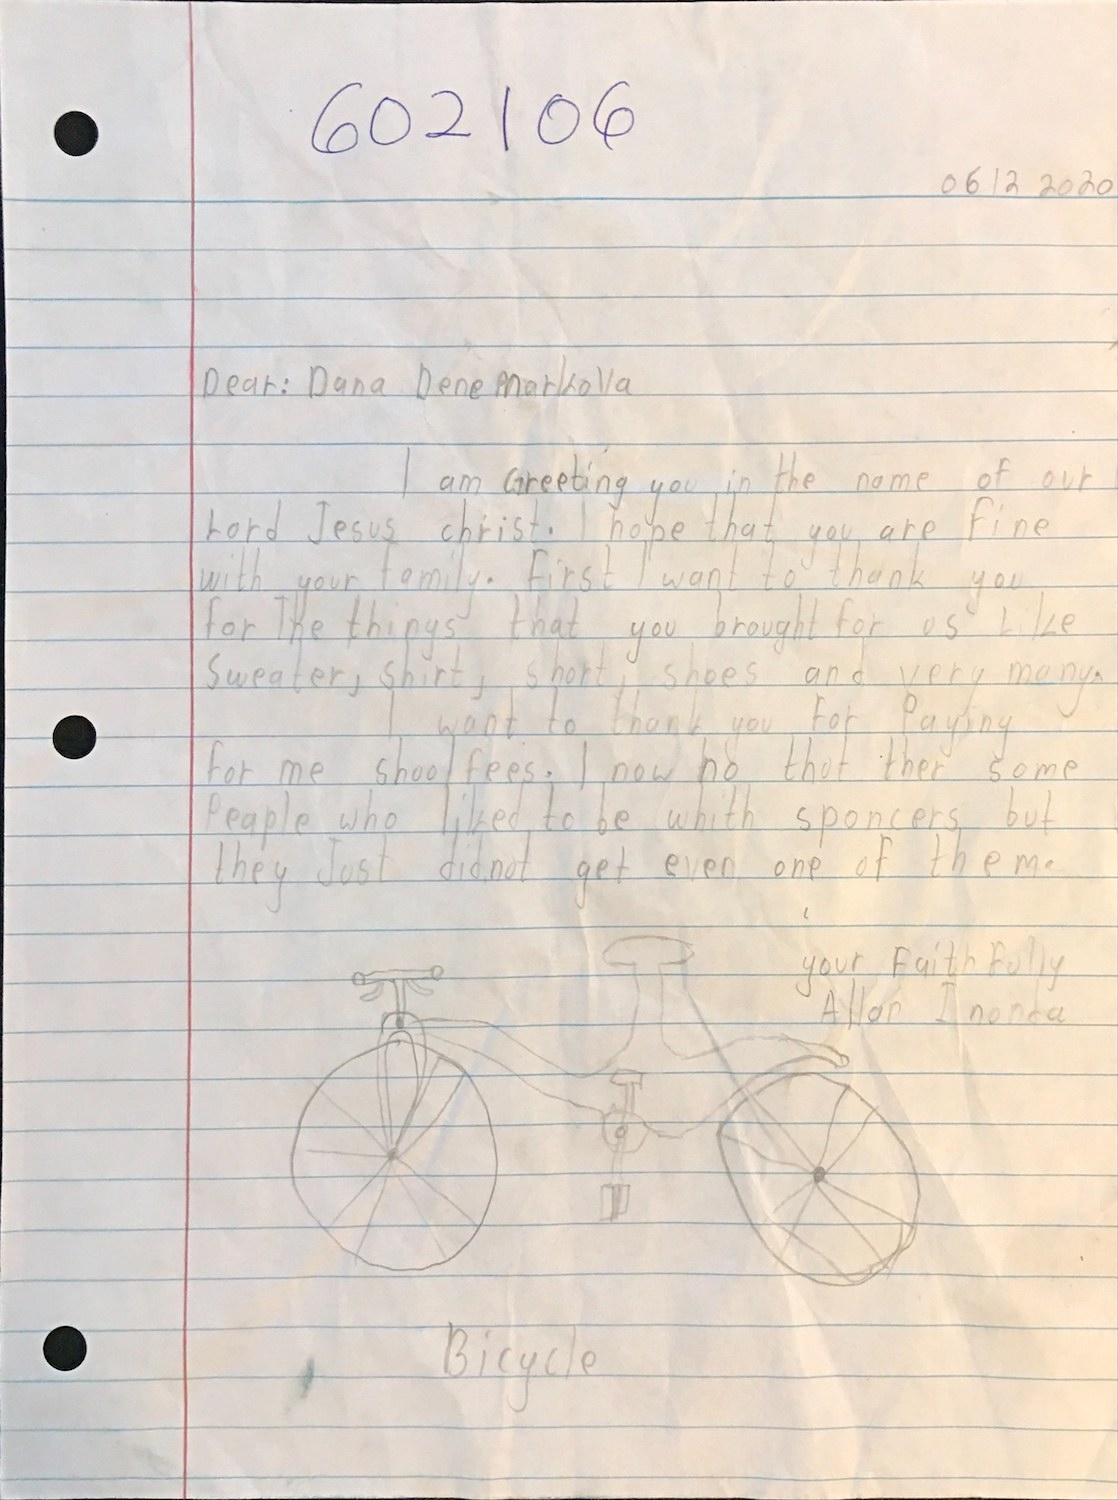 602106
0612 2020
Dear: Dana Dene Markova
I am Greeting you in the name of our
Lord Jesus christ. I hope that you are fine
with your family. First I want to thank you
for The things that you brought for us Like
Sweater, shirt, short, shoes and very many.
I want to thank you For Paying
for me shool fees. I now no that ther some
Peaple who liked to be whith sponcers but
they Just didnot get even one of them.
your Faith Fully
Allan Inonda
Bicycle